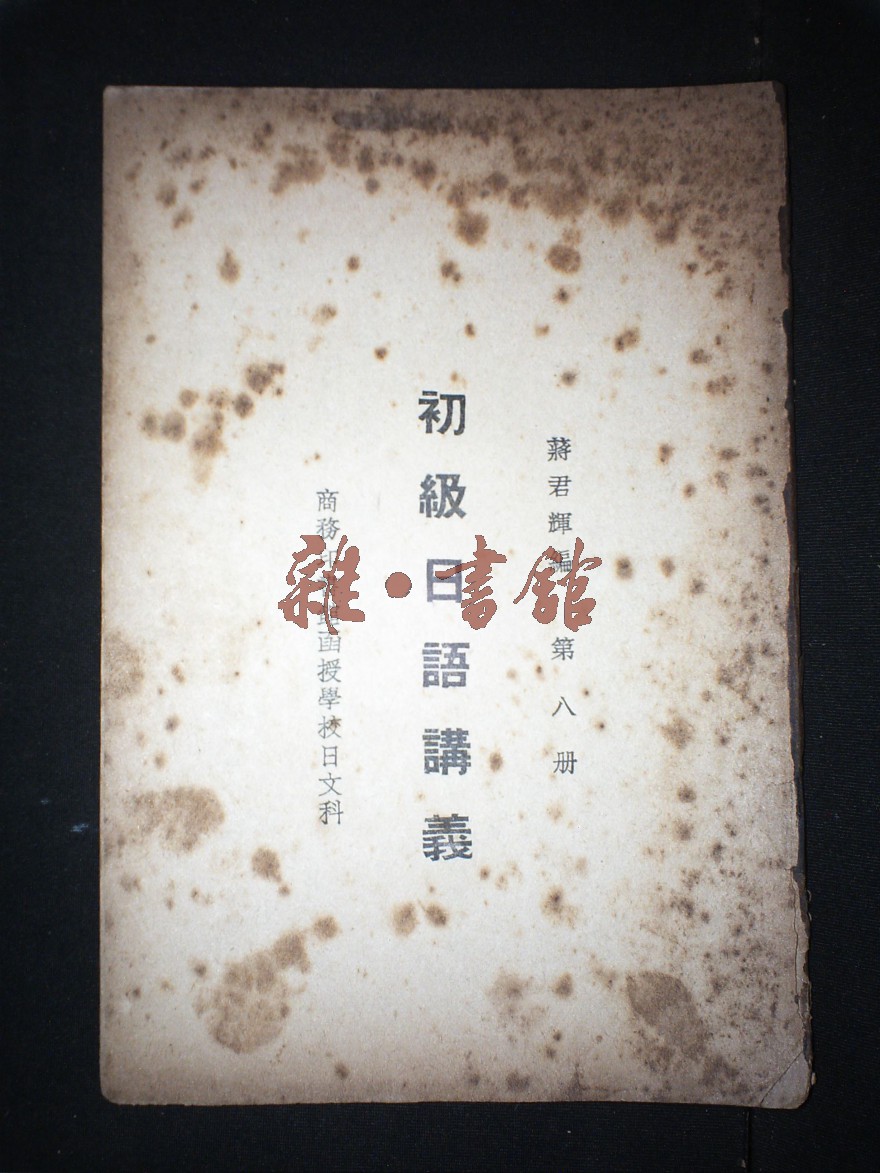 蔣君輝編 第八册
初級日語講義
商務印書館函授學校日文科
雜·書館